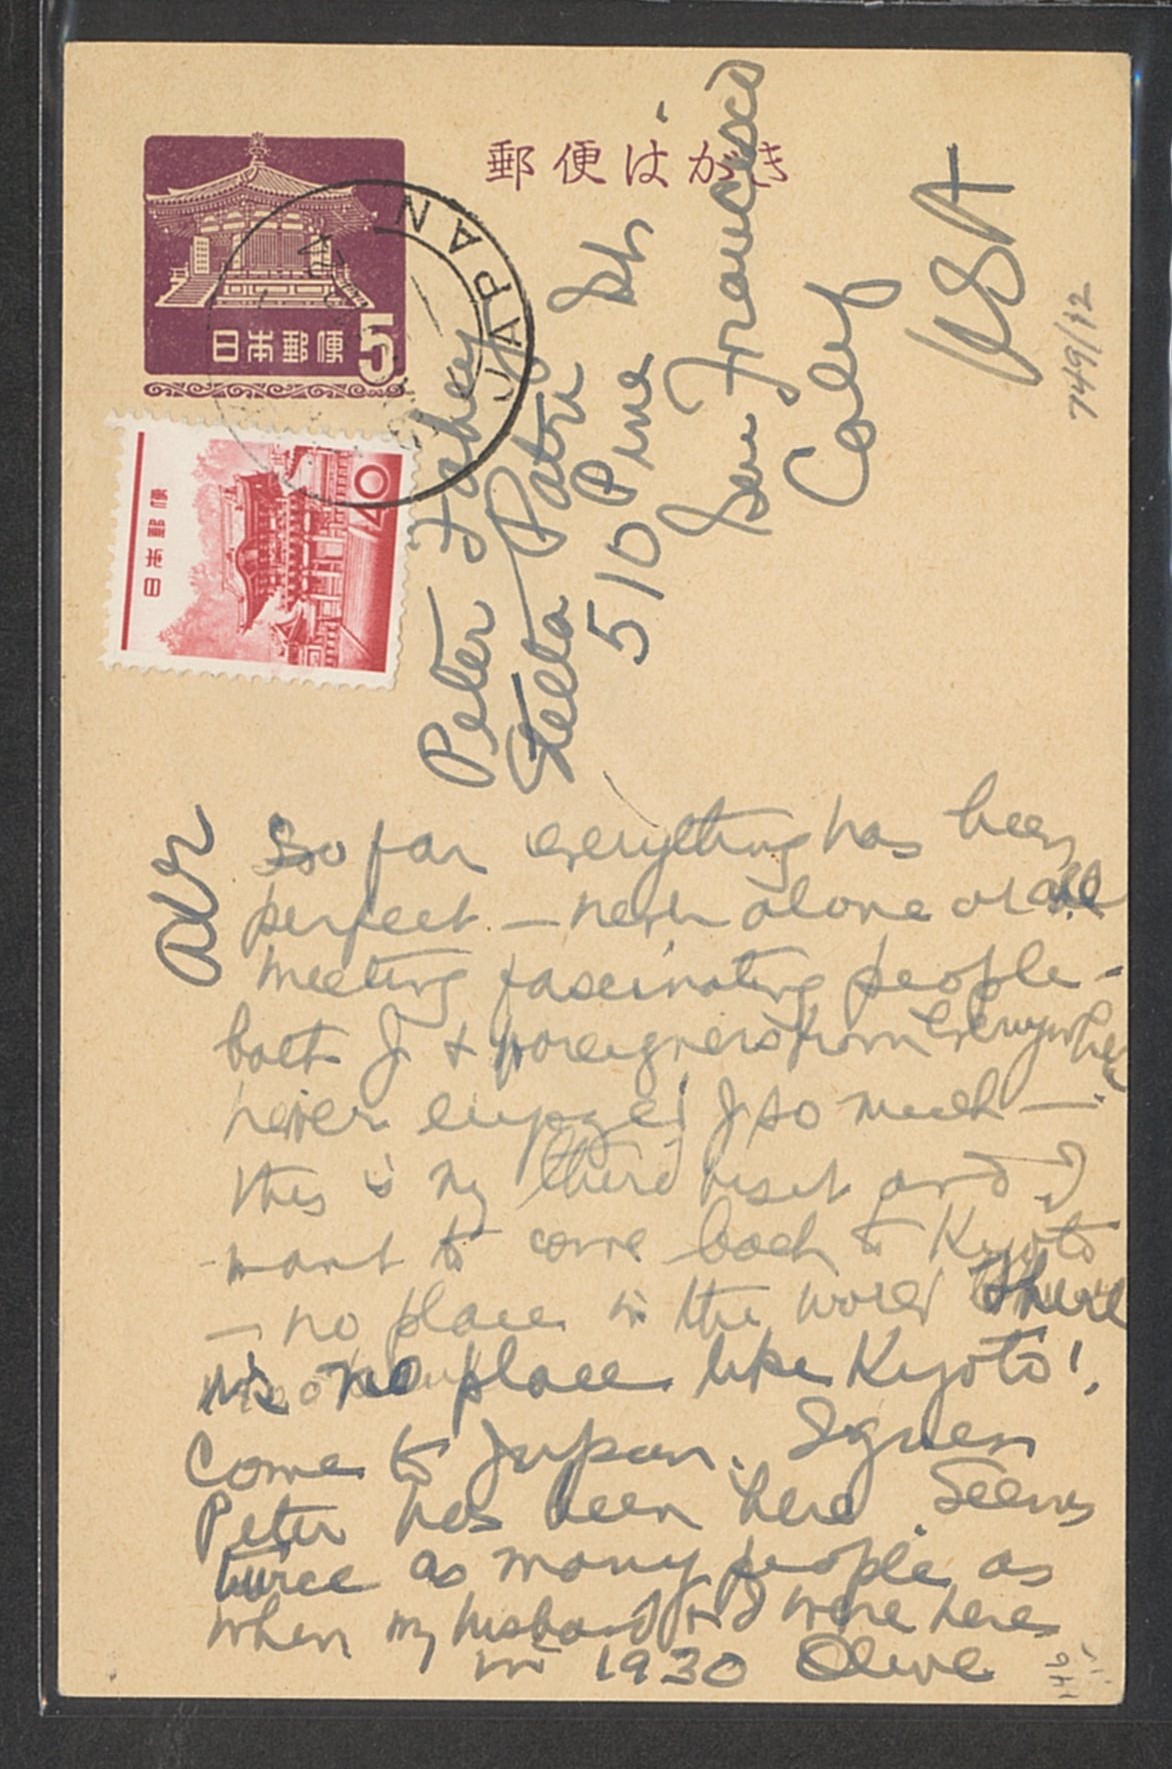 郵便はがき
日本郵便 5
JAPAN
日本郵便
40
Peter Fahey
Stella Patri
510 Pine St.
San Francisco
Calif
USA
749/12
air
So far everything has been
perfect – never alone at all
meeting fascinating people –
both J & foreigners from everywhere
never enjoyed J so much –
this is my third visit and I
want to come back to Kyoto
– no place in the world there
is no place like Kyoto!
Come to Japan.
Peter has been here. Seems
twice as many people as
when my husband and I were here
in 1930 Olive